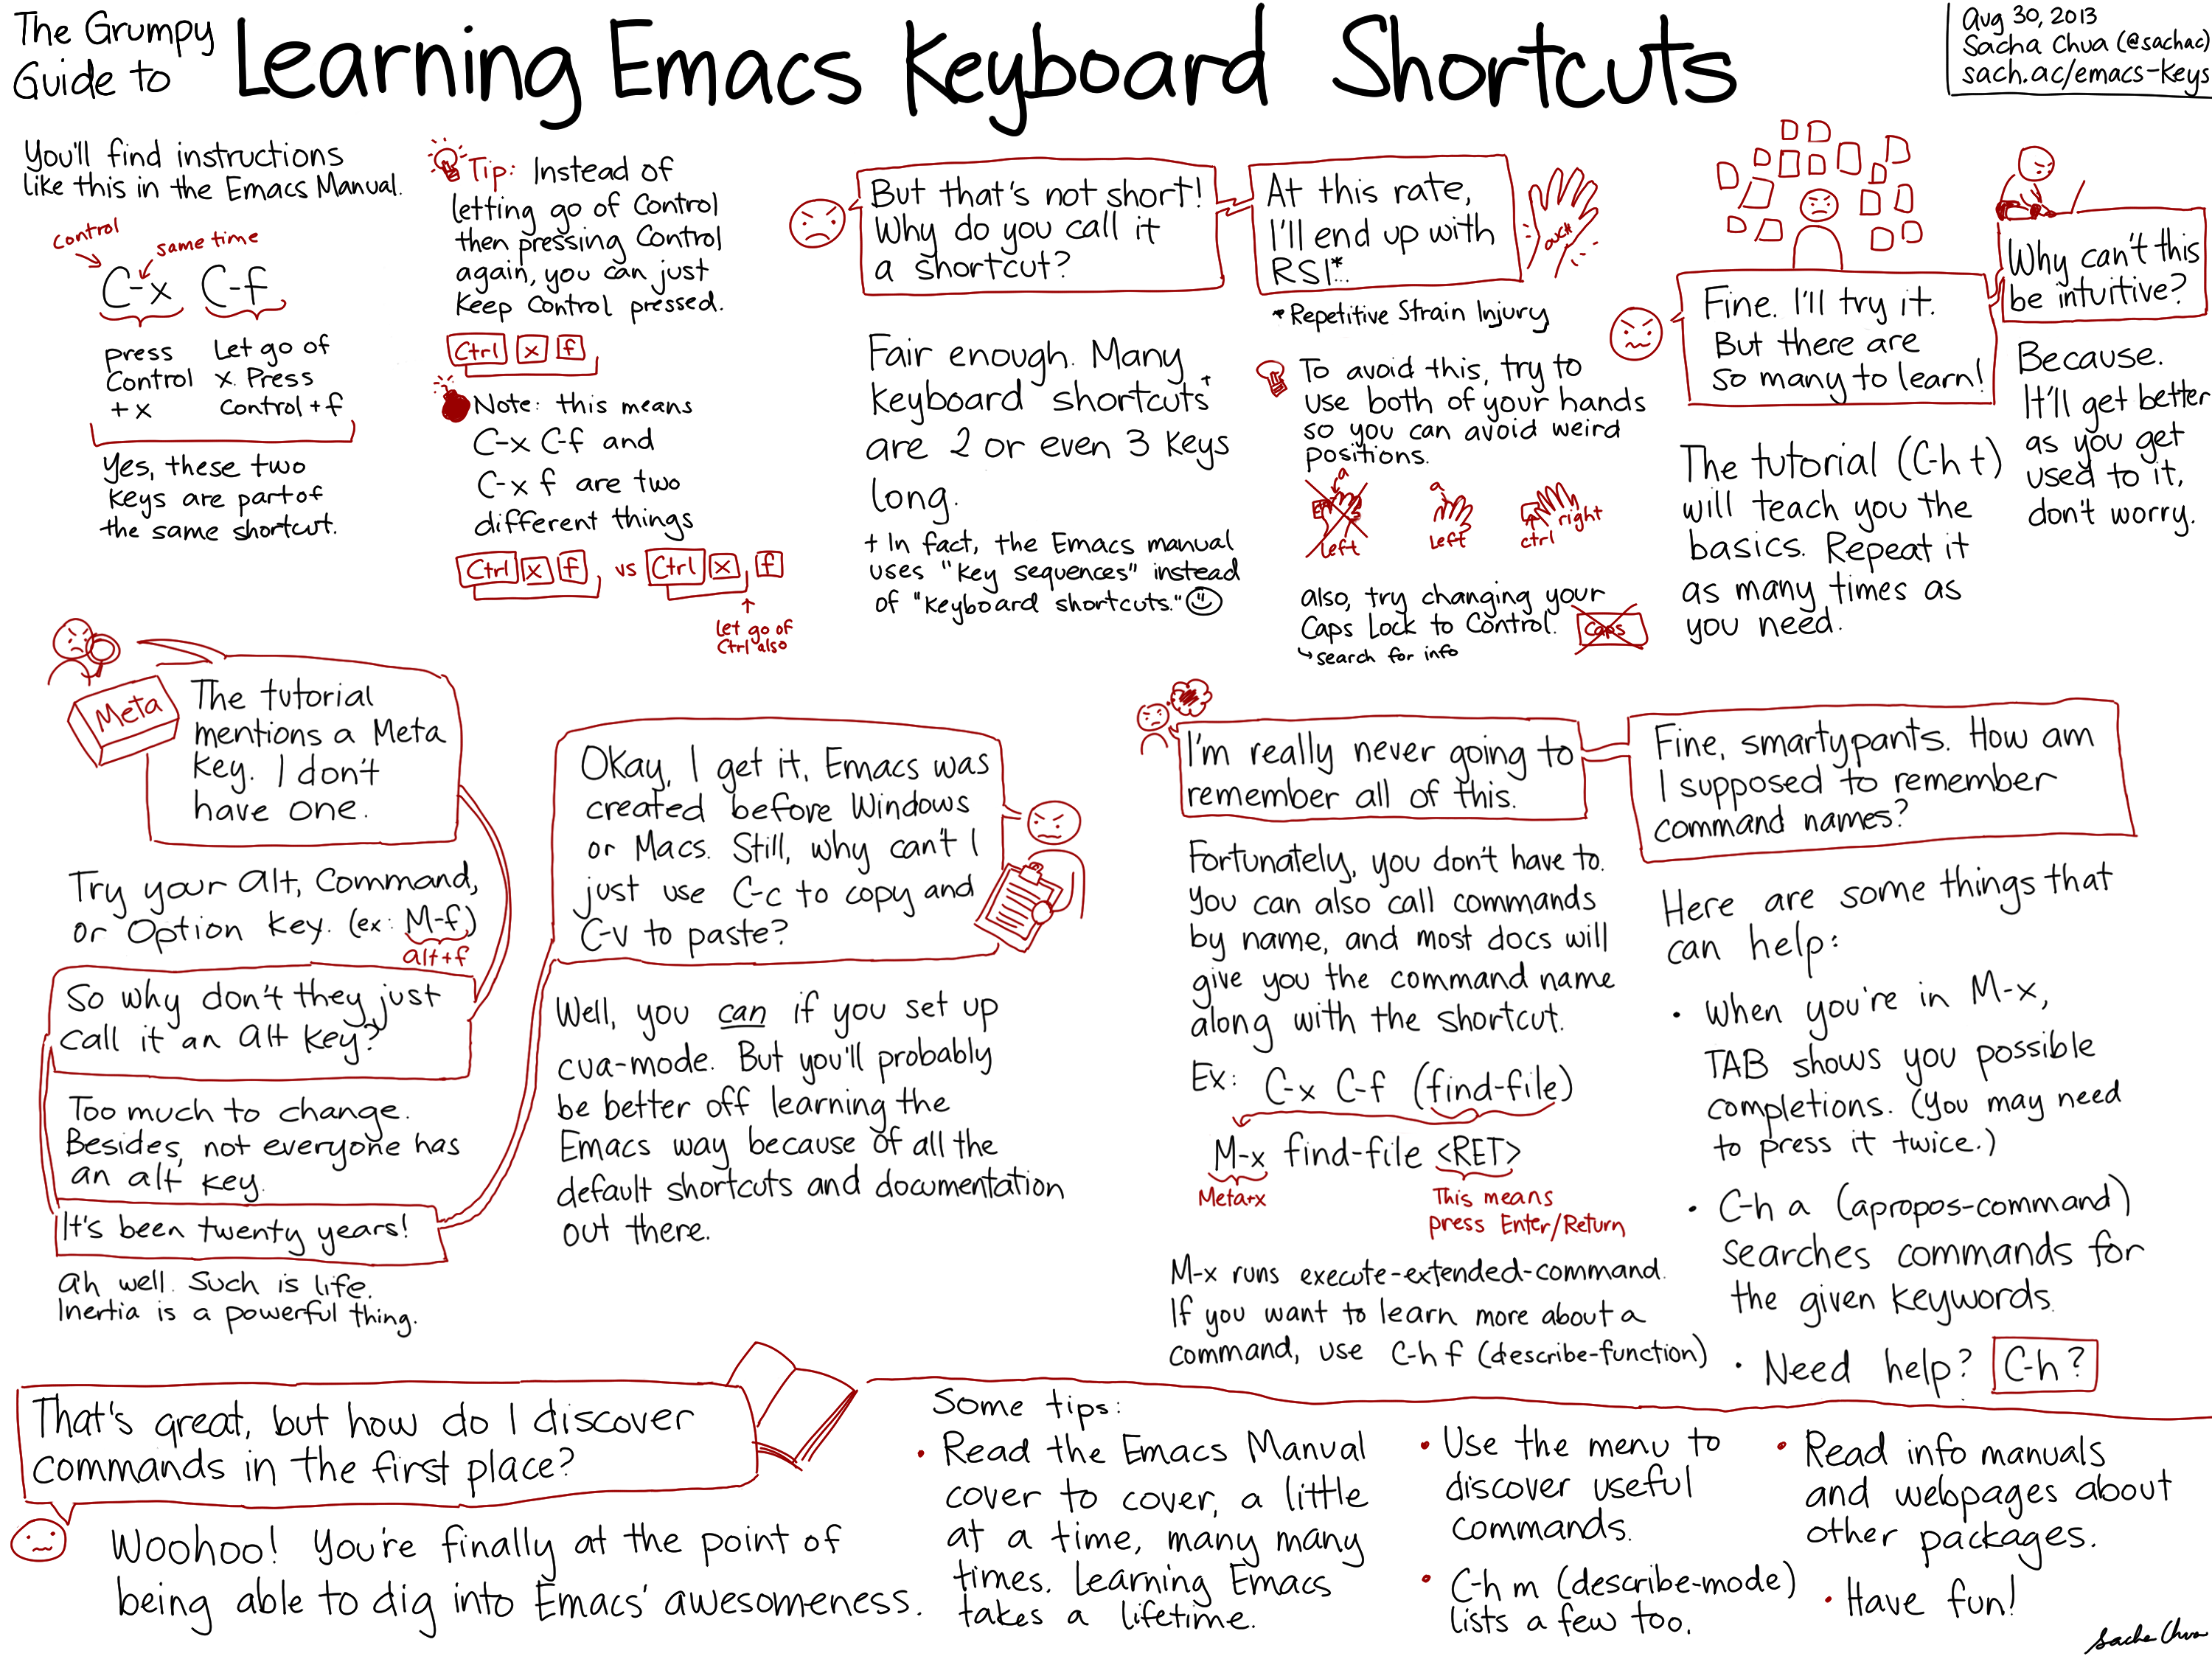 The Grumpy
Guide to
Learning Emacs Keyboard Shortcuts
Aug 30, 2013
Sacha Chua (@sachac)
sach.ac/emacs-keys
You'll find instructions
like this in the Emacs Manual.
control
same time
C-x C-f
press
Control
+ x
Let go of
x. Press
Control + f
Yes, these two
keys are part of
the same shortcut.
Tip: Instead of
letting go of Control
then pressing Control
again, you can just
keep Control pressed.
Ctrl x f
Note: this means
C-x C-f and
C-x f are two
different things
Ctrl x f , vs Ctrl x , f
let go of
Ctrl also
But that's not short!
Why do you call it
a shortcut?
At this rate,
I'll end up with
RSI*...
OUCH
* Repetitive Strain Injury
Fair enough. Many
keyboard shortcuts+
are 2 or even 3 keys
long.
+ In fact, the Emacs manual
uses "key sequences" instead
of "keyboard shortcuts."
To avoid this, try to
use both of your hands
so you can avoid weird
positions.
a
left
a
left
ctrl
right
also, try changing your
Caps Lock to Control.
Caps
search for info
Fine. I'll try it.
But there are
so many to learn!
The tutorial (C-h t)
will teach you the
basics. Repeat it
as many times as
you need.
Why can't this
be intuitive?
Because.
It'll get better
as you get
used to it,
don't worry.
Meta
The tutorial
mentions a Meta
key. I don't
have one.
Try your Alt, Command,
or Option key. (ex: M-f)
alt+f
So why don't they just
call it an Alt key?
Too much to change.
Besides, not everyone has
an alt key.
It's been twenty years!
Ah well. Such is life.
Inertia is a powerful thing.
Okay, I get it, Emacs was
created before Windows
or Macs. Still, why can't I
just use C-c to copy and
C-v to paste?
Well, you can if you set up
cua-mode. But you'll probably
be better off learning the
Emacs way because of all the
default shortcuts and documentation
out there.
I'm really never going to
remember all of this.
Fortunately, you don't have to.
You can also call commands
by name, and most docs will
give you the command name
along with the shortcut.
Ex: C-x C-f (find-file)
M-x find-file <RET>
Meta+x
This means
press Enter/Return
M-x runs execute-extended-command.
If you want to learn more about a
command, use C-h f (describe-function)
Fine, smartypants. How am
I supposed to remember
command names?
Here are some things that
can help:
• When you're in M-x,
TAB shows you possible
completions. (You may need
to press it twice.)
• C-h a (apropos-command)
searches commands for
the given keywords.
• Need help? C-h ?
That's great, but how do I discover
commands in the first place?
Woohoo! You're finally at the point of
being able to dig into Emacs' awesomeness.
Some tips:
• Read the Emacs Manual
cover to cover, a little
at a time, many many
times. Learning Emacs
takes a lifetime.
• Use the menu to
discover useful
commands.
• C-h m (describe-mode)
lists a few too.
• Read info manuals
and webpages about
other packages.
• Have fun!
Sacha Chua